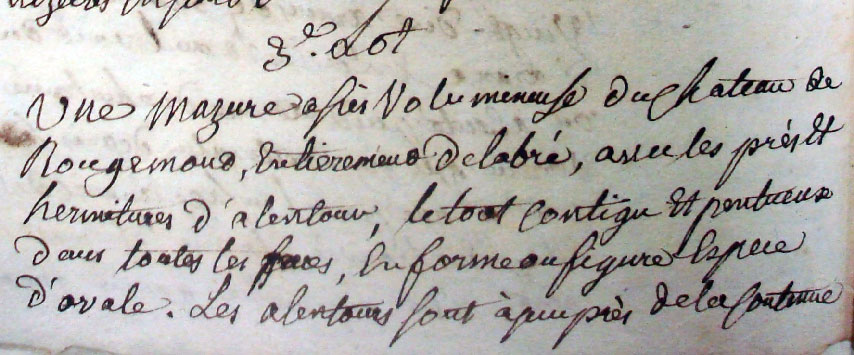 3e. Lot
Une Mazure assés Volumineuse du Chateau de
Rougemond, Entierement delabré, avec les prés Et
hermitures d'alentour, le tout Contigu Et pentueux
dans toutes les faces, En forme ou figure Espece
d'ovale. Les alentours sont à peu près de la Contenue